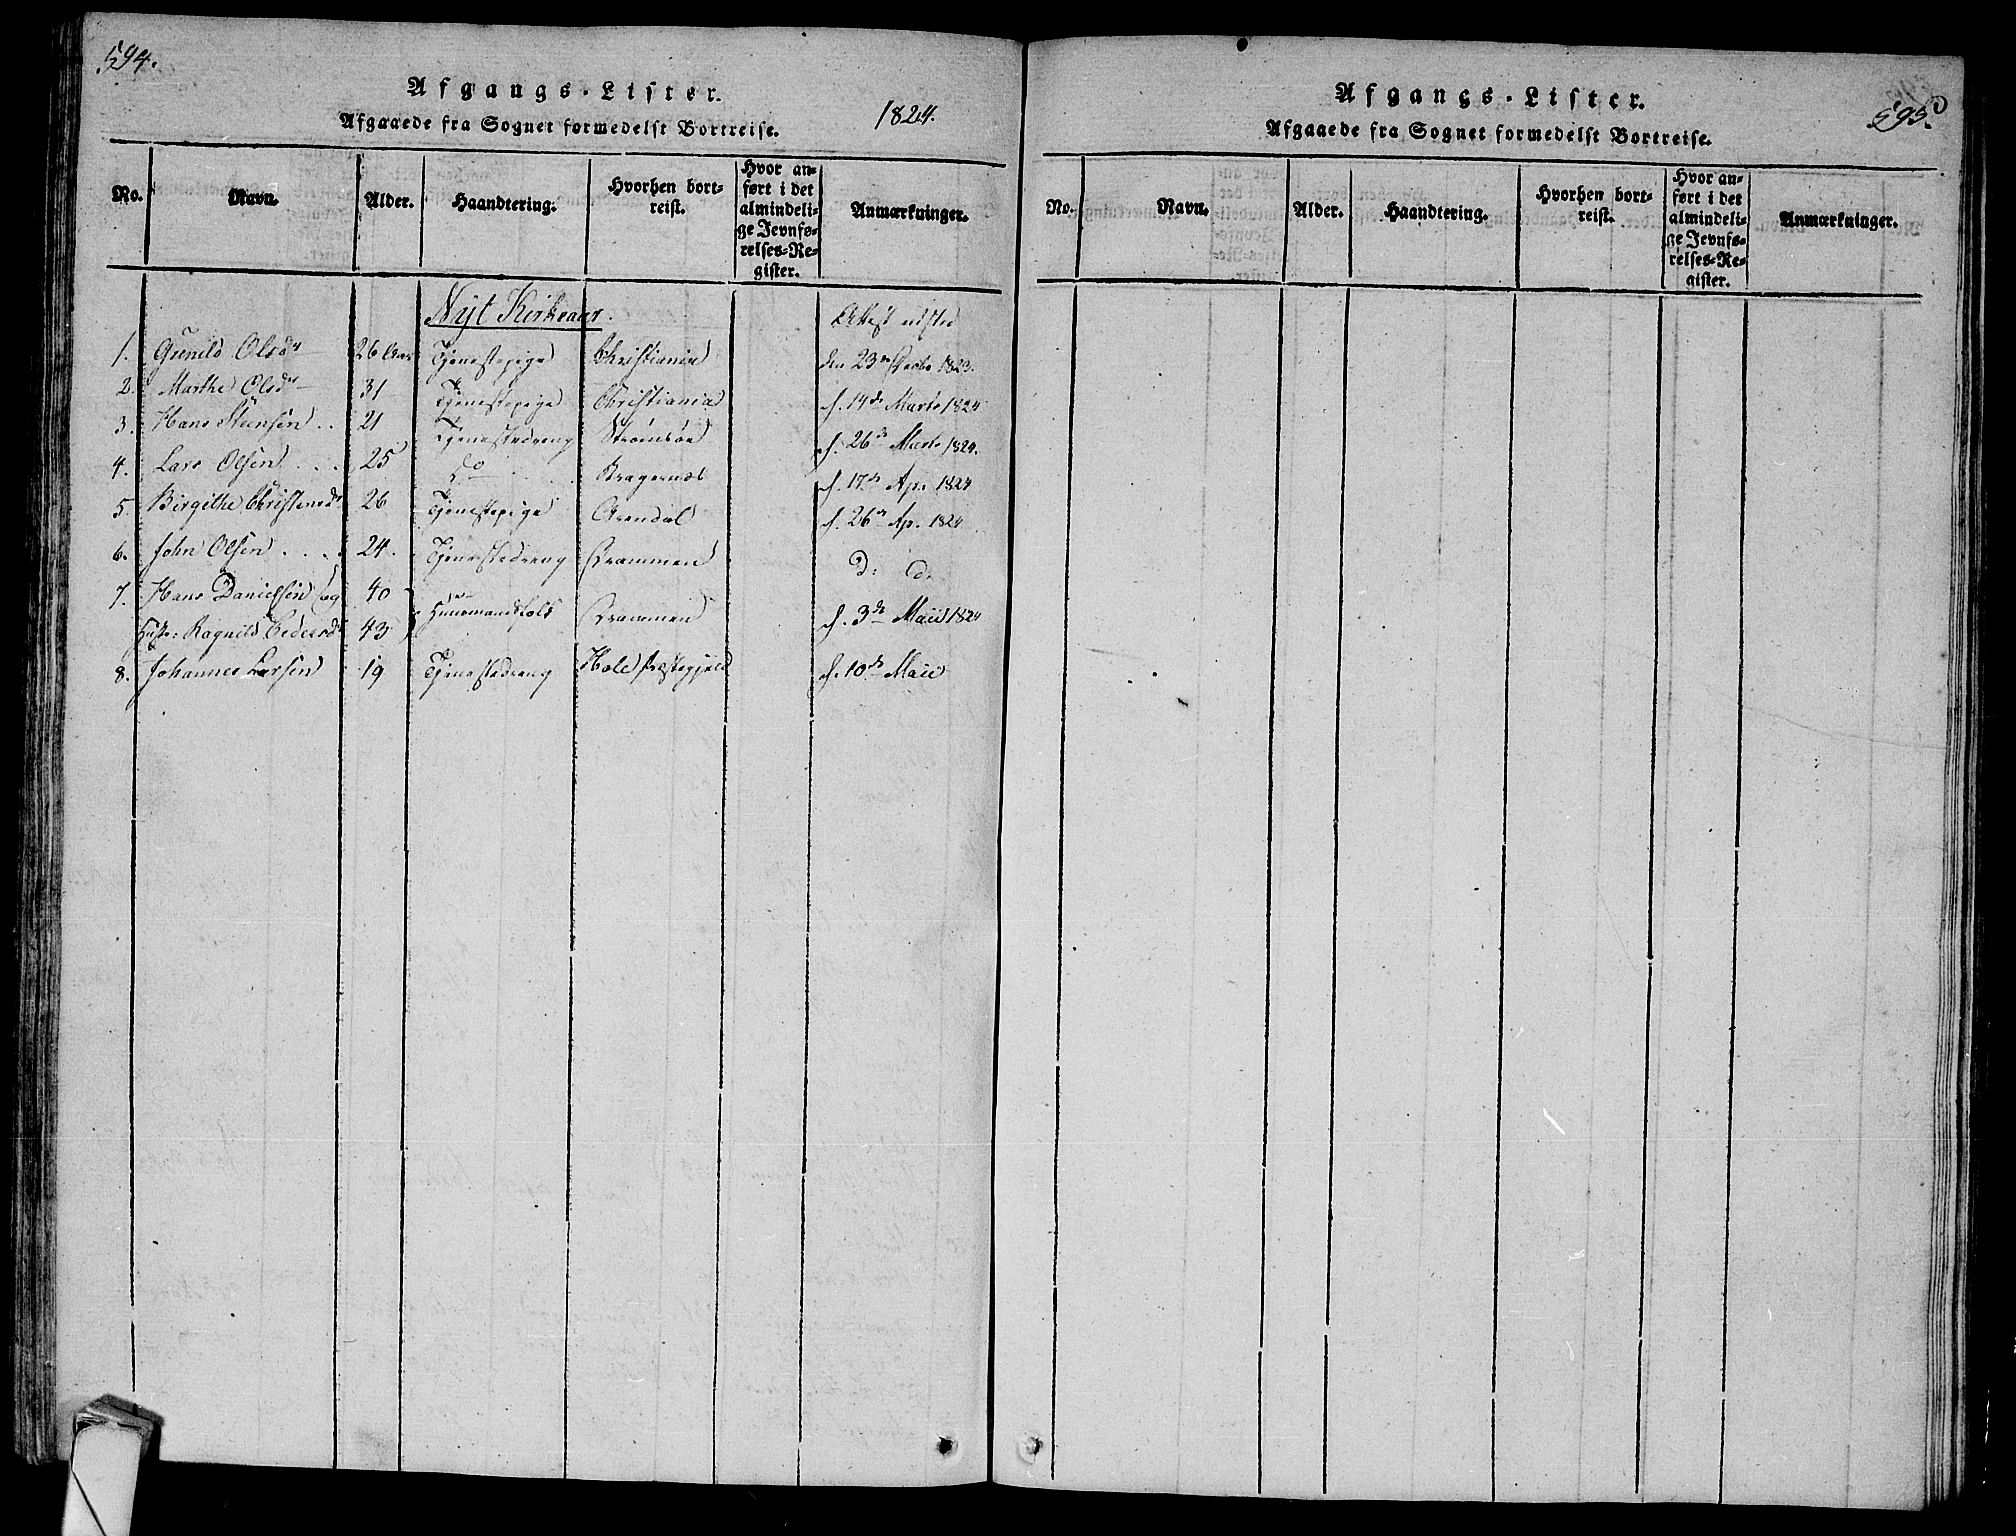 594.
Afgangs-Lister.
Afgaaede fra Sognet formedelst Bortreise.
1824.
No. Navn. Alder. Haandtering. Hvorhen bortreist. Hvor anført i det almindelige Jevnførelses-Register. Anmærkninger.
Nyt Kirkeaar.
Attest udsted
1. Gunild Olsdr 26 Aar Tjenestepige Christiania den 23de Decbr 1823.
2. Marthe Olsdr 31 Tjenestepige Christiania d. 14de Marts 1824
3. Hans Steensen .. 21 Tjenestedreng Strømsøe d. 26de Marts 1824.
4. Lars Olsen .... 25 do Bragernæs d. 17de Apr 1824
5. Birgithe Christensdr 26 Tjenestepige Arendal d. 26de Ap. 1824
6. John Olsen .... 24. Tjenestedreng Drammen D: d.
7. Hans Danielsen og 40 Huusmandsfolk Drammen d. 3de Maii 1824
Hustr: Ragnild Pedersdr 43
8. Johannes Larsen 19 Tjenestedreng Hole Præstegjeld d. 10de Maii
595.
Afgangs-Lister.
Afgaaede fra Sognet formedelst Bortreise.
No. Navn. Alder. Haandtering. Hvorhen bortreist. Hvor anført i det almindelige Jevnførelses-Register. Anmærkninger.